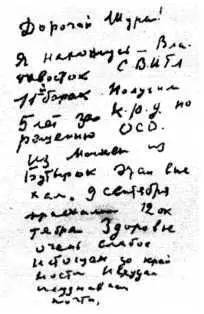 Дорогой Шура!
Я нахожусь – Вла
дивосток СВИТЛ
11й барак. Получил
5 лет за к.р.д. по
решению ОСО.
Из Москвы из
Бутырок этап вые
хал 9 сентября
приехали 12 ок
тября Здоровье
очень слабое
истощен до край
ности Исхудал
неузнаваем
почти,